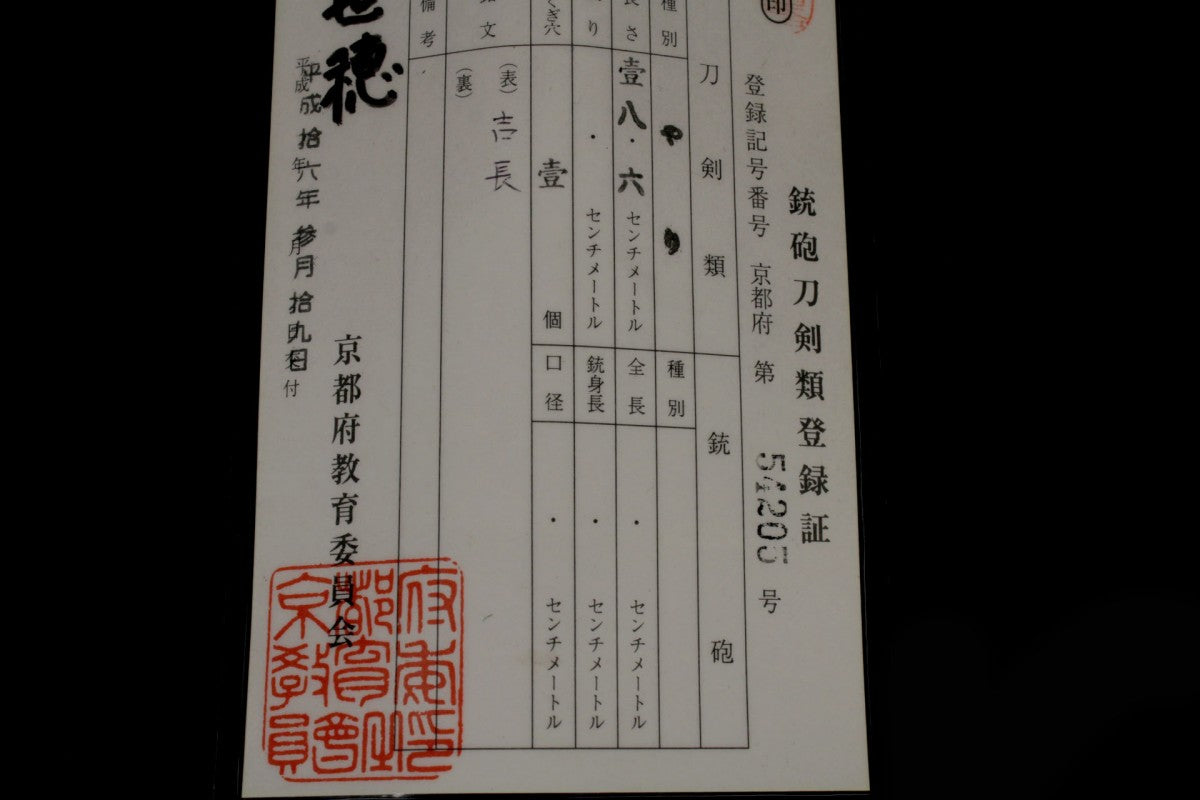 銃砲刀剣類登録証
登録記号番号 京都府 第 54205 号
印
刀剣類
銃砲
種別 やり
長さ 壹八・六 センチメートル
り ・ センチメートル
くぎ穴 壹 個
文 (表) 吉長
(裏)
備考
種別
全長 ・ センチメートル
銃身長 ・ センチメートル
口径 ・ センチメートル
平成拾六年参月拾九日
平成 年 月 日交付
京都府教育委員会
穂